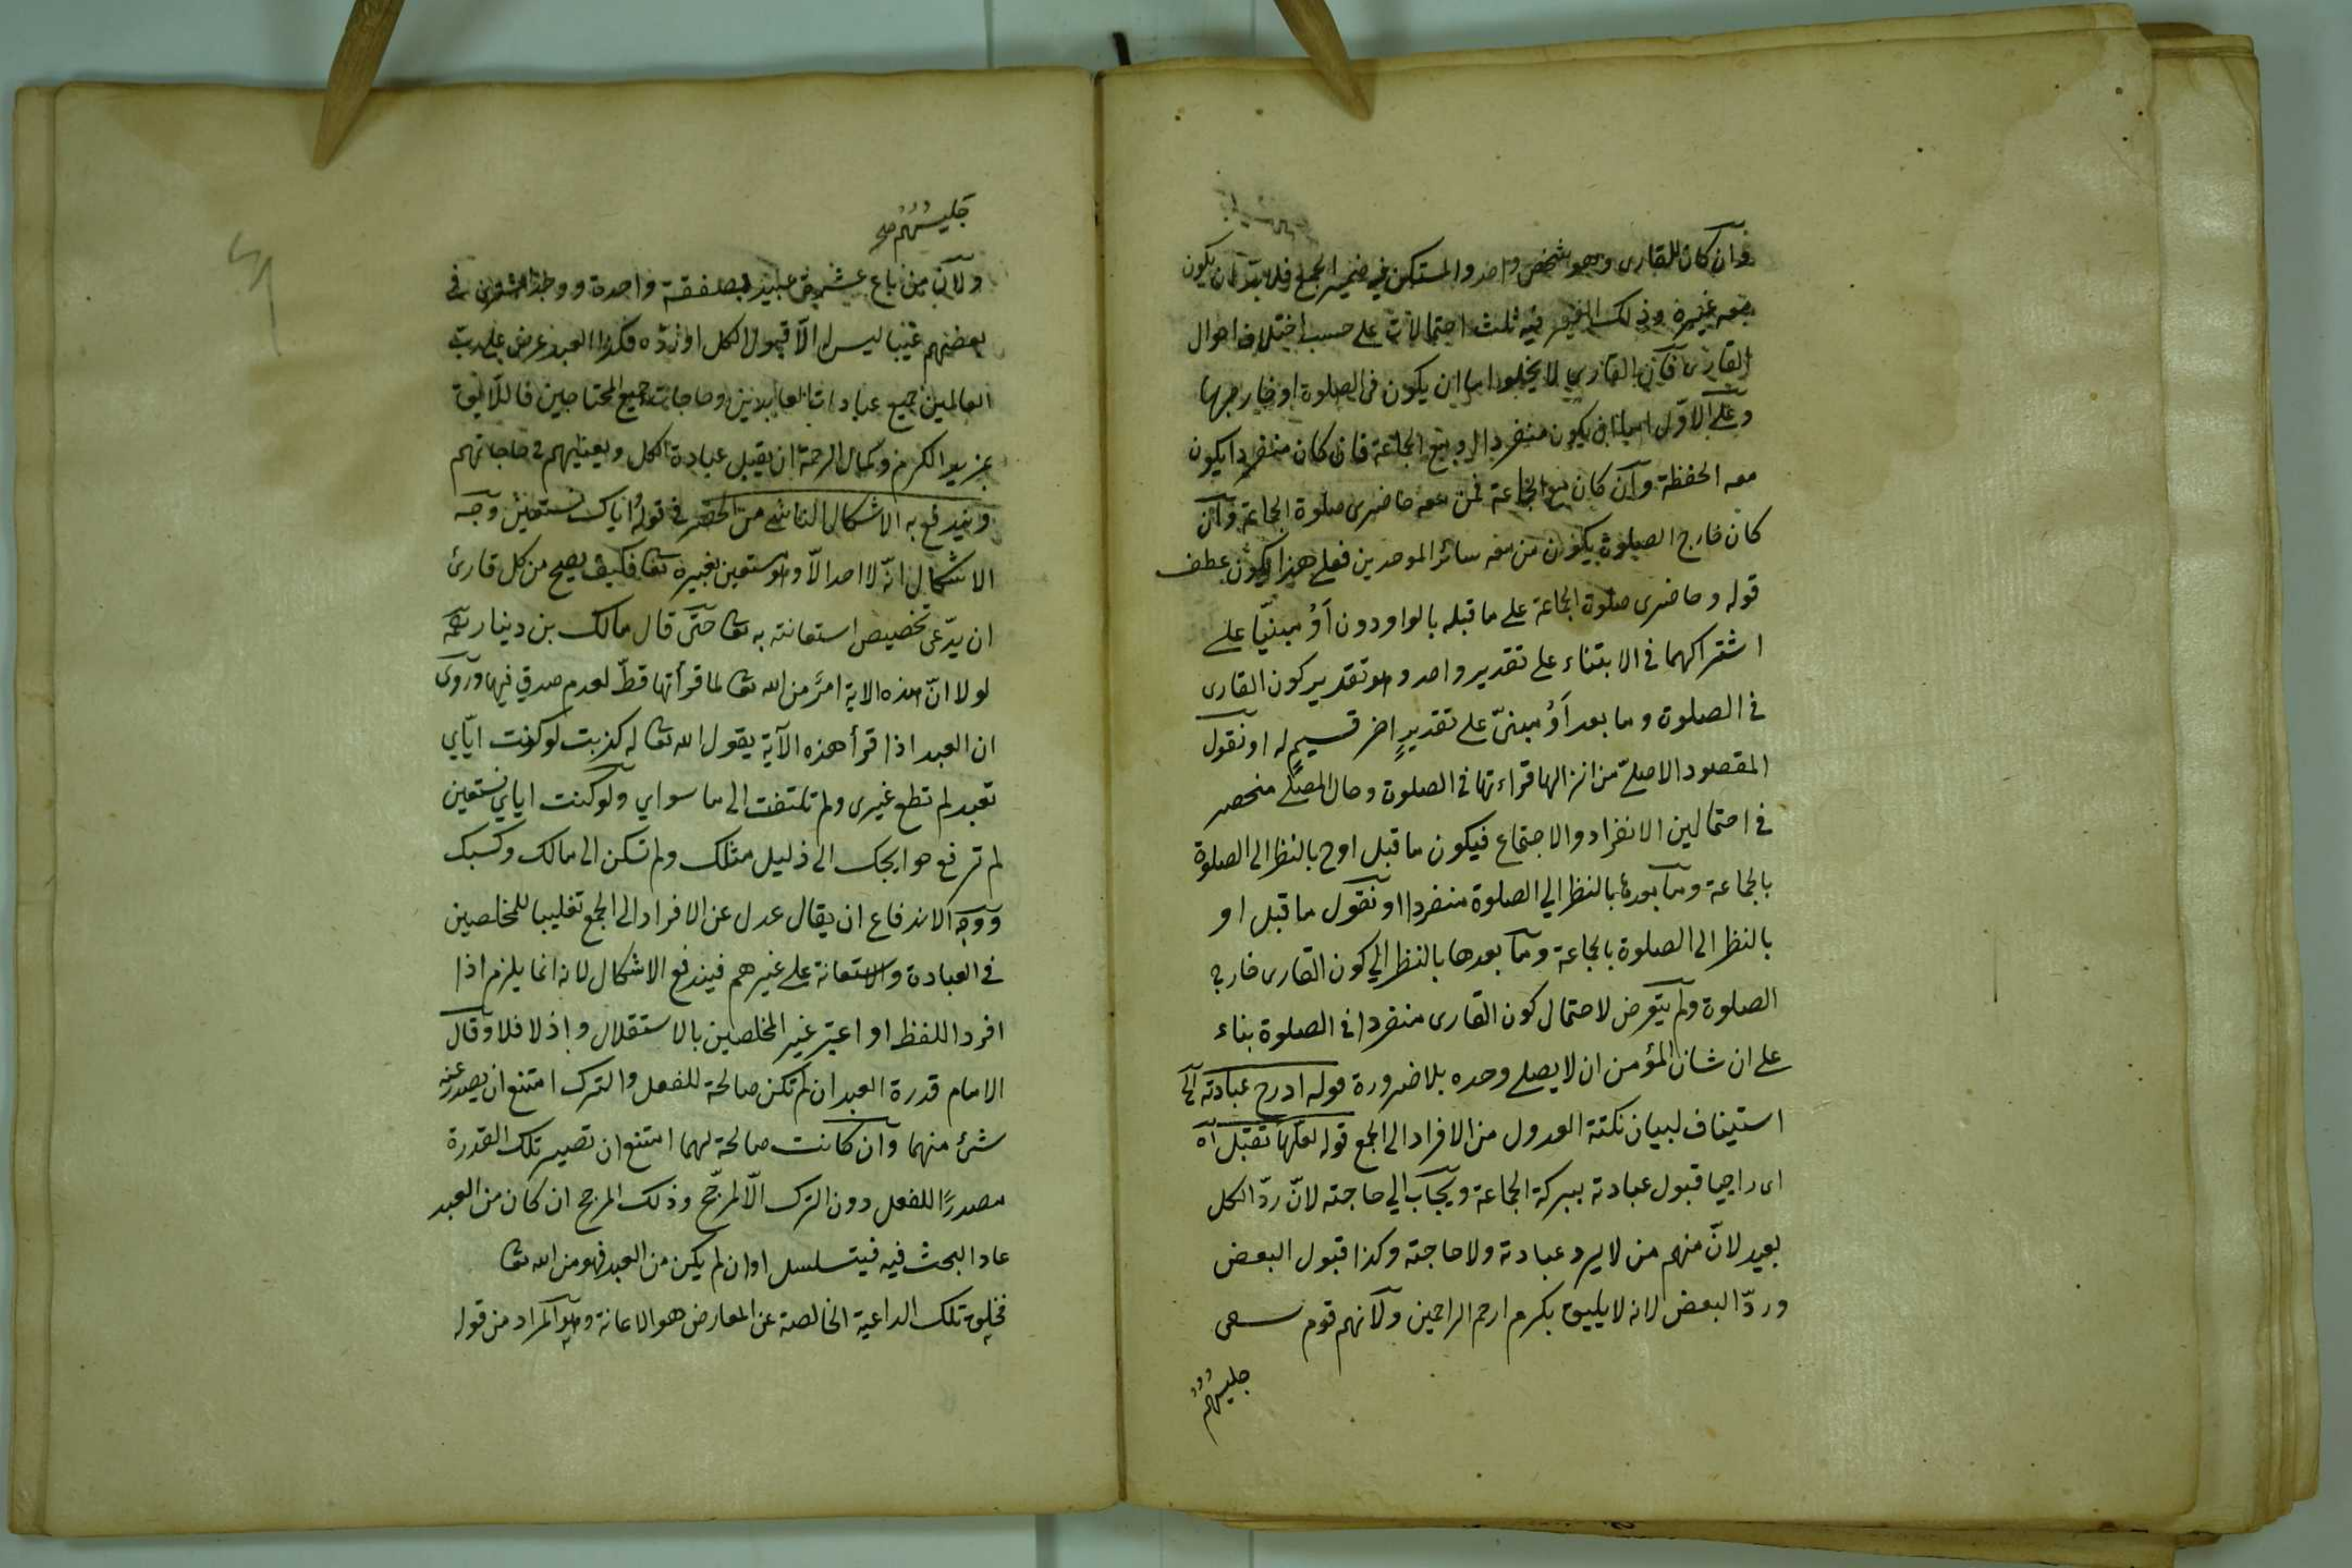 وان كان للقارى وهو شخص واحد والمستكن فيه ضمير الجمع فلا بدّ ان يكون
معه غيره وذلك الغير فيه ثلث احتمالات على حسب اختلاف احوال
القارى فانّ القاري لا يخلوا اما ان يكون فى الصلوة او خارجها
وعلى الاوّل اما ان يكون منفردا او مع الجماعة فان كان منفردا يكون
معه الحفظة وان كان مع الجماعة فمن معه حاضرى صلوة الجماعة وان
كان خارج الصلوة يكون من معه سائر الموحدين فعلى هذا يكون عطف
قوله وحاضرى صلوة الجماعة على ما قبله بالواو دون أوْ مبنيّا على
اشتراكهما فى الابتناء على تقدير واحد وهو تقدير كون القارى
فى الصلوة وما بعد أوْ مبنىّ على تقديرٍ اخر قسيمٍ له او نقول
المقصود الاصلىّ من انزالها قراءتها فى الصلوة وحال المصلّى منحصر
فى احتمالين الانفراد والاجتماع فيكون ما قبل اوح بالنظر الى الصلوة
بالجماعة وما بعدها بالنظر الي الصلوة منفردا او نقول ما قبل او
بالنظر الى الصلوة بالجماعة وما بعدها بالنظر الي كون القارى خارج
الصلوة ولم يتعرض لاحتمال كون القارى منفردا فى الصلوة بناء
على ان شان المؤمن ان لا يصلى وحده بلا ضرورة قوله ادرج عبادته الخ
استيناف لبيان نكتة العدول من الافراد الى الجمع قوله لعلّها تقبل اه
اى راجيا قبول عبادته ببركة الجماعة ويجاب الي حاجته لانّ ردّ الكل
بعيد لانّ منهم من لا يرد عبادته ولا حاجته وكذا قبول البعض
وردّ البعض لانه لا يليق بكرم ارحم الراحمين ولانهم قوم سعى
جليسُهُم
جليسُهُم صح
ولانّ من باع عشرة عبيد بصفقة واحدة ووجد المشترى فى
بعضهم عيبا ليس له الّا قبول الكل او ردّه فكذا العبد عرض على رب
العالمين جميع عبادات العابدين وحاجات جميع المحتاجين فاللّايق
بمزيد الكرم وكمال الرحمة ان يقبل عبادة الكل ويعينهم فى حاجاتهم
ويندفع به الاشكال الناشى من الحصر فى قوله اياك نستعين وجه
الاشكال انّه لا احد الّا وهو مستعين بغيره تعا فكيف يصح من كل قارئ
ان يدّعى تخصيص استعانته به تعا حتى قال مالك بن دينار رحمه
لو لا انّ هذه الاية امرٌ من الله تعا لما قرأتها قطّ لعدم صدقي فيها وروى
ان العبد اذا قرأ هذه الآية يقول الله تعا له كذبت لو كنت ايّاي
تعبد لم تطع غيرى ولم تلتفت الى ما سواي ولو كنت اياي تستعين
لم ترفع حوايجك الى ذليل مثلك ولم تسكن الى مالك وكسبك
ووجه الاندفاع ان يقال عدل عن الافراد الى الجمع تغليبا للمخلصين
فى العبادة والاستعانة على غيرهم فيندفع الاشكال لانه انما يلزم اذا
افرد اللفظ او اعتبر غير المخلصين بالاستقلال واذ لا فلا وقال
الامام قدرة العبد ان لم تكن صالحة للفعل والترك امتنع ان يصدر عنه
شئ منهما وان كانت صالحة لهما امتنع ان تصير تلك القدرة
مصدرًا للفعل دون الترك الّا لمرجّح وذلك المرجح ان كان من العبد
عاد البحث فيه فيتسلسل او ان لم يكن من العبد فهو من الله تعا
فخلق تلك الداعية الخالصة عن المعارض هو الاعانة وهو المراد من قوله